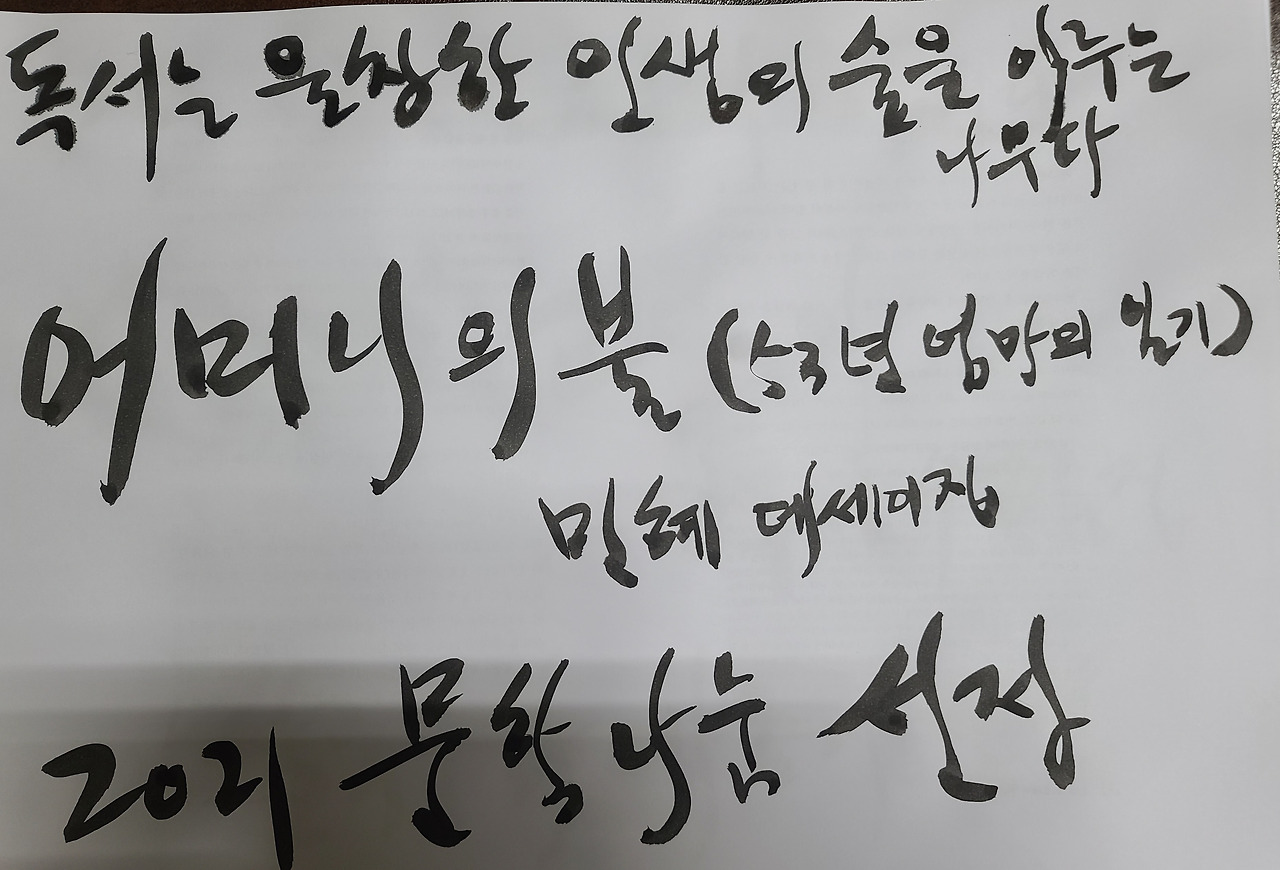 독서는 울창한 인생의 숲을 이루는
나무다
어머니의 불 (53년 엄마의 일기)
밀혜
2021 문학나눔 선정